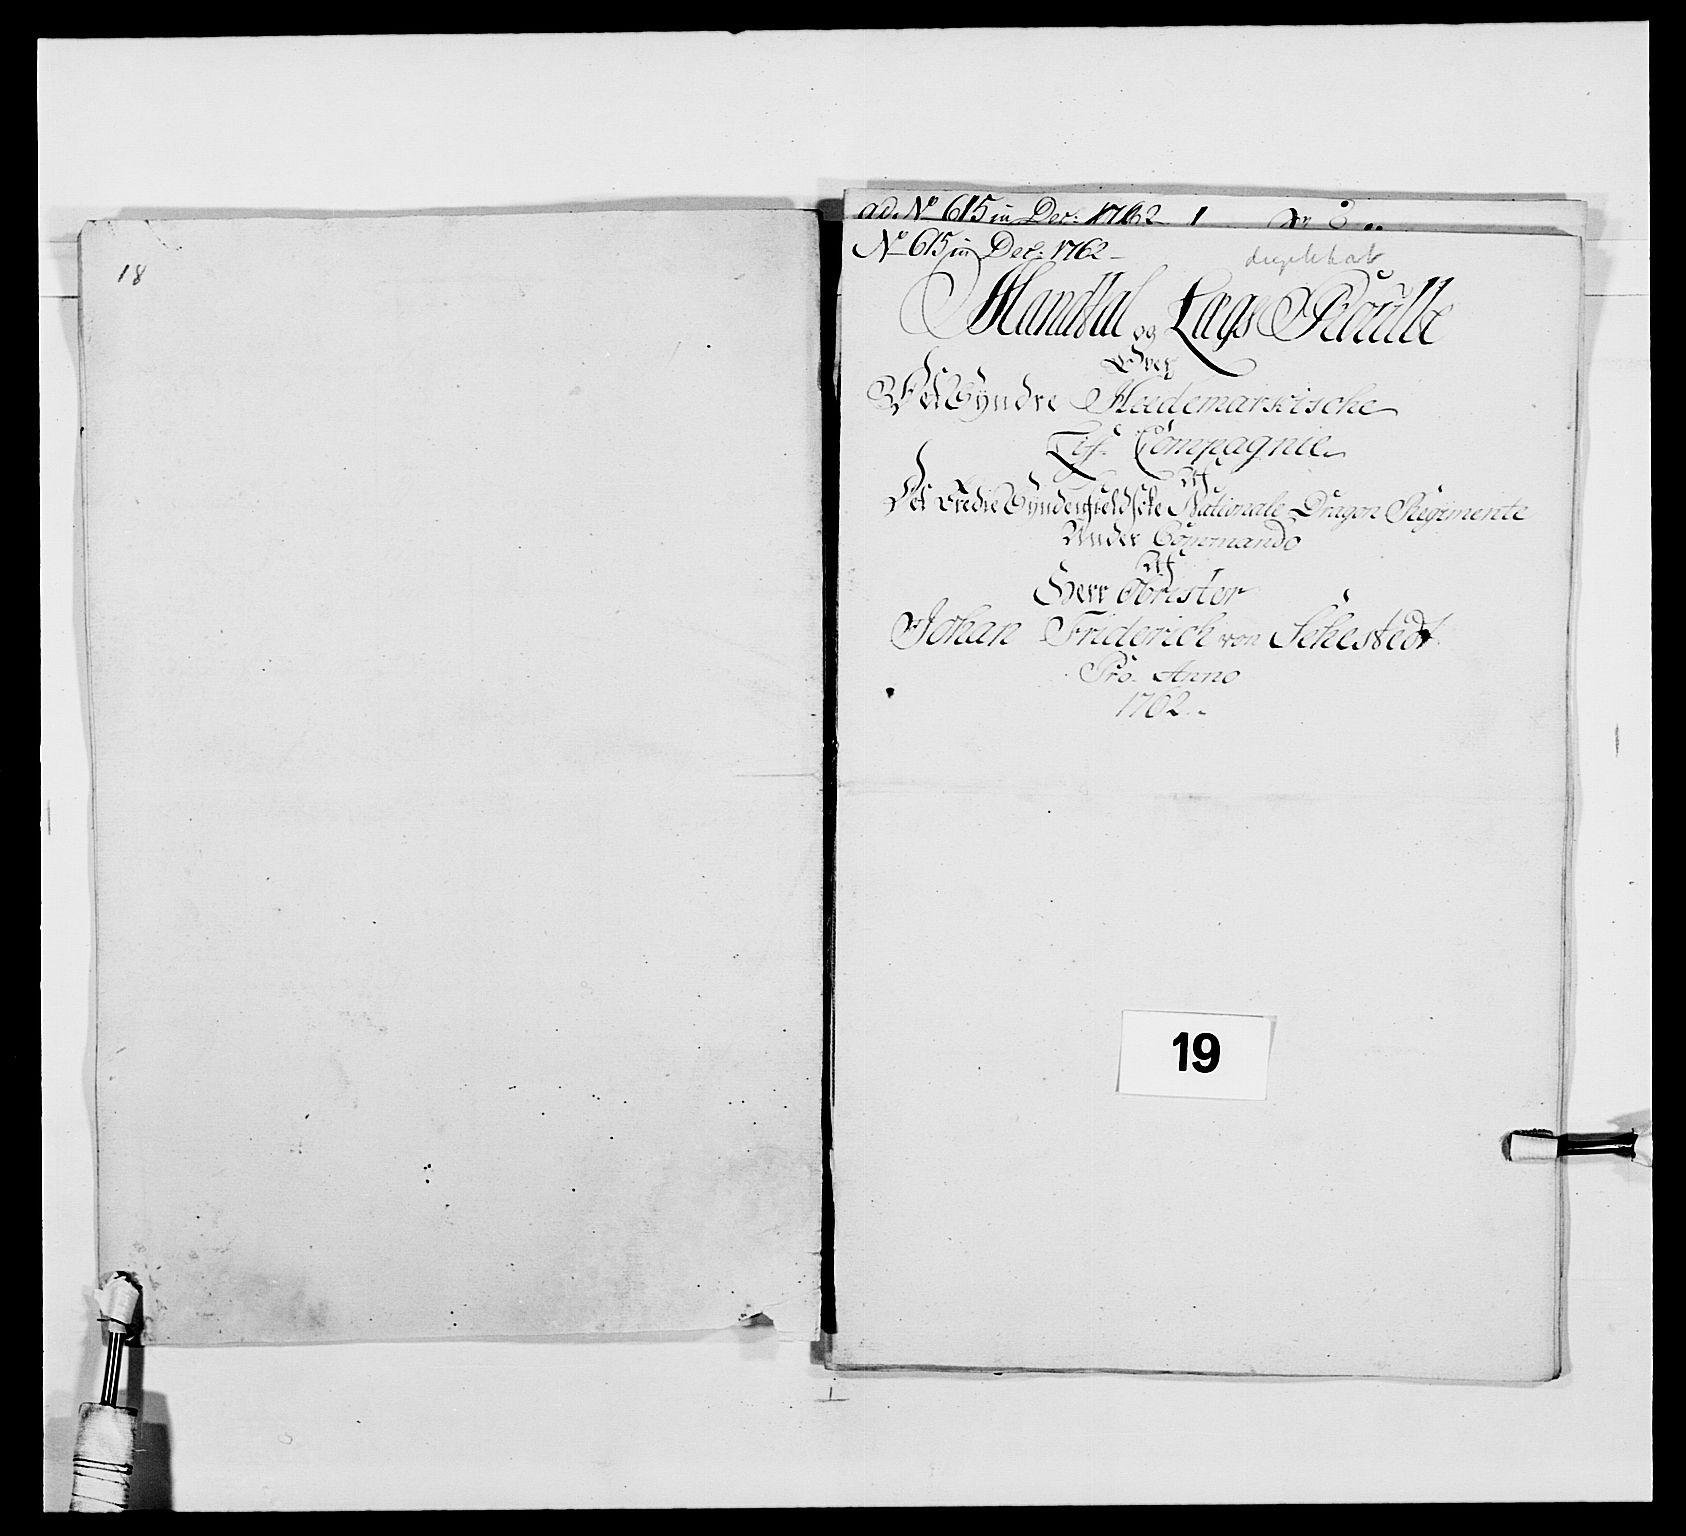 18
ad. No 615 in Dec: 1762 1
No 615 in Dec: 1762
duplikat
Mandtal og Lægs Roulle
Over
Det Tyndre Hedemarkische
Lif Compagnie
Af
Det Tredie Syndenfieldske Nationale Dragon Regimente
Under Commando
Af
Herr Obrister
Johan Friderich von Schestedt
Pro Anno
1762
19